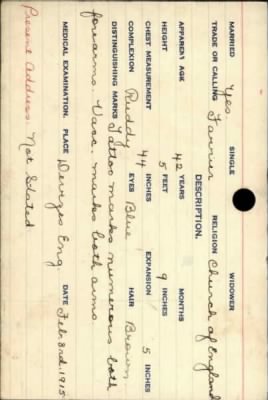 MARRIED Yes SINGLE WIDOWER
TRADE OR CALLING Farrier RELIGION Church of England
DESCRIPTION.
APPARENT AGE 42 YEARS MONTHS
HEIGHT 5 FEET 9 INCHES
CHEST MEASUREMENT 44 INCHES EXPANSION 5 INCHES
COMPLEXION Ruddy EYES Blue HAIR Brown
DISTINGUISHING MARKS Tattoo marks numerous both
forearms. Vacc. marks both arms
MEDICAL EXAMINATION. PLACE Devizes Eng. DATE Feb 3rd. 1915
Present Address: Not Stated